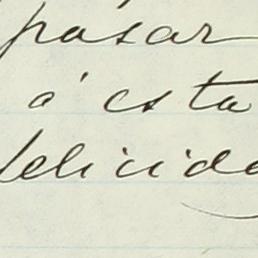 pasar
á esta
felicida